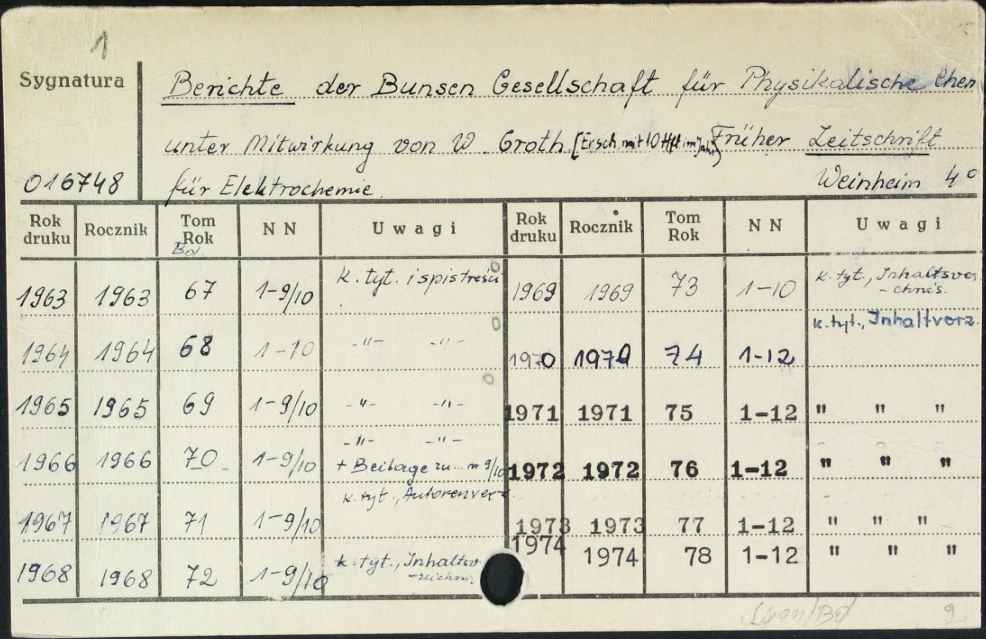 1
Sygnatura Berichte der Bunsen Gesellschaft für Physikalische Chem
unter Mitwirkung von W. Groth. [Ersch. mit 10 Hft. im Jahr] Früher Zeitschrift
016748 für Elektrochemie. Weinheim 4°
Rok druku Rocznik Tom Rok NN Uwagi Rok druku Rocznik Tom Rok NN Uwagi
Bd.
1963 1963 67 1-9/10 k. tyt. i spis treści 1969 1969 73 1-10 k. tyt., Inhaltsver
-chnis.
1964 1964 68 1-10 -"- -"- 1970 1970 74 1-12 k. tyt., Inhaltverz
1965 1965 69 1-9/10 -"- -"- 1971 1971 75 1-12 " " "
1966 1966 70 1-9/10 -"- -"- 1972 1972 76 1-12 " " "
+ Beilage zu m 9/10
1967 1967 71 1-9/10 k. tyt., Autorenverz 1973 1973 77 1-12 " " "
1974 1974 78 1-12 " " "
1968 1968 72 1-9/10 k. tyt., Inhaltsv
-zeichn.
9